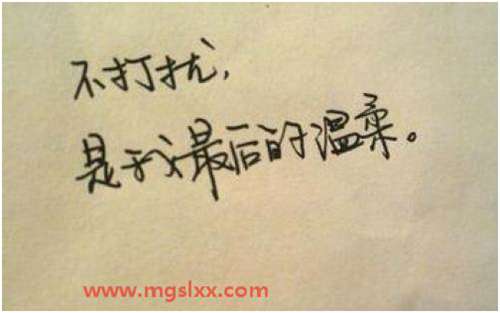 不打扰,
是我最后的温柔。
www.mgslxx.com